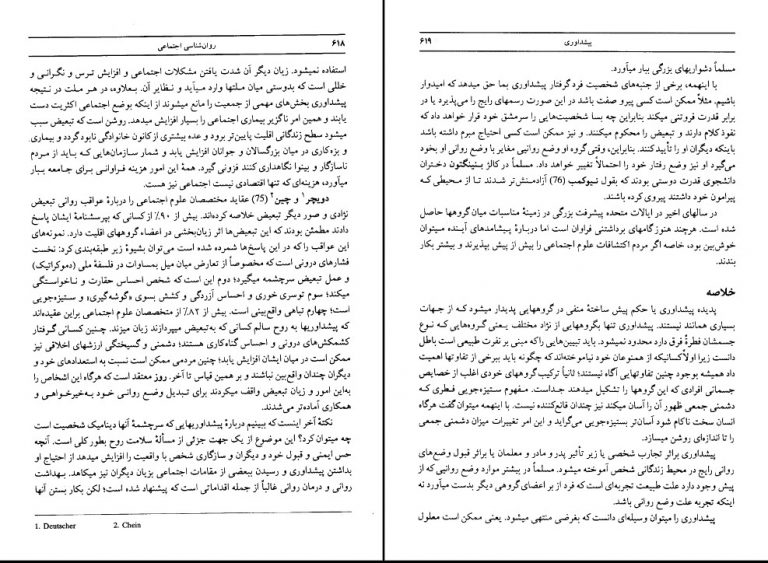 ۶۱۸ روان‌شناسی اجتماعی
استفاده نمیشود. زیان دیگر آن شدت یافتن مشکلات اجتماعی و افزایش ترس و نگرانی و
خللی است که بدوستی میان ملتها وارد میآید و نظایر آن. بعلاوه، در هر ملت در نتیجه
پیشداوری بخش‌های مهمی از جمعیت را مانع میشوند از اینکه بوضع اجتماعی اکثریت دست
یابند و همین امر ناگزیر بیماری اجتماعی را بسیار افزایش میدهد. روشن است که تبعیض سبب
میشود سطح زندگانی اقلیت پایین‌تر برود و عده بیشتری از کانون خانوادگی نابود گردد و بیماری
و بزه‌کاری در میان بزرگسالان و جوانان افزایش یابد و شمار سازمان‌هایی که باید از مردم
ناسازگار و بینوا نگاهداری کنند فزونی گیرد. همهٔ این امور هزینه فراوانی برای جامعه ببار
میآورد، هزینه‌ای که تنها اقتصادی نیست اجتماعی نیز هست.
دویچر۱ و چین۲ (75) عقاید متخصصان علوم اجتماعی را دربارهٔ عواقب روانی تبعیض
نژادی و صور دیگر تبعیض خلاصه کرده‌اند. بیش از ۹۰٪ از کسانی که بپرسشنامهٔ ایشان پاسخ
دادند مطمئن بودند که این تبعیض‌ها اثر زیان‌بخشی در اعضاء گروههای اقلیت دارد. نمونه‌های
این عواقب را که در این پاسخ‌ها شمرده شده است می‌توان بشیوهٔ زیر طبقه‌بندی کرد: نخست
فشارهای درونی است که مخصوصاً از تعارض میان میل بمساوات در فلسفهٔ ملی (دموکراتیک)
و عمل تبعیض سرچشمه میگیرد؛ دوم این است که شخص احساس حقارت و ناخواستگی
میکند؛ سوم توسری خوری و احساس آزردگی و کشش بسوی «گوشه‌گیری» و ستیزه‌جویی
است؛ چهارم تباهی واقع‌بینی است. بیش از ۸۲٪ از متخصصان علوم اجتماعی براین عقیده‌اند
که پیشداوریها به روح سالم کسانی که به‌تبعیض میپردازند زیان میزند. چنین کسانی گرفتار
کشمکش‌های درونی و احساس گناه‌کاری هستند؛ دشمنی و گسیختگی ارزشهای اخلاقی نیز
ممکن است در میان ایشان افزایش یابد؛ چنین مردمی ممکن است نسبت به استعدادهای خود و
دیگران چندان واقع‌بین نباشند و بر همین قیاس تا آخر. روز معتقد است که هرگاه این اشخاص را
به‌این امور و زیان تبعیض واقف میکردند برای تبدیل وضع روانی خود به‌خیرخواهی و
همکاری آماده‌تر می‌شدند.
نکتهٔ آخر اینست که ببینیم دربارهٔ پیشداوریهایی که سرچشمهٔ آنها دینامیک شخصیت است
چه میتوان کرد؟ این موضوع از یک جهت جزئی از مسألهٔ سلامت روح بطور کلی است. آنچه
حس ایمنی و قبول خود و دیگران و سازگاری شخص با واقعیت را افزایش میدهد از احتیاج او
بداشتن پیشداوری و رسیدن ببعضی از مقامات اجتماعی بزیان دیگران نیز میکاهد. بهداشت
روانی و درمان روانی غالباً از جمله اقداماتی است که پیشنهاد شده است؛ لکن بکار بستن آنها
1. Deutscher 2. Chein
پیشداوری ۶۱۹
مسلماً دشواریهای بزرگی ببار میآورد.
با اینهمه، برخی از جنبه‌های شخصیت فرد گرفتار پیشداوری بما حق میدهد که امیدوار
باشیم. مثلاً ممکن است کسی پیرو صفت باشد در این صورت رسمهای رایج را می‌پذیرد یا در
برابر قدرت فروتنی میکند بنابراین چه بسا شخصیت‌هایی را سرمشق خود قرار خواهد داد که
نفوذ کلام دارند و تبعیض را محکوم میکنند. و نیز ممکن است کسی احتیاج مبرم داشته باشد
باینکه دیگران او را تأیید کنند. بنابراین، وقتی گروه او وضع روانیی مغایر با وضع روانی او بخود
می‌گیرد او نیز وضع رفتار خود را احتمالاً تغییر خواهد داد. مسلماً در کالژ بنینگتون دختران
دانشجوی قدرت دوستی بودند که بقول نیوکمب (76) آزادمنش‌تر شدند تا از محیطی که
پیرامون خود داشتند پیروی کرده باشند.
در سالهای اخیر در ایالات متحده پیشرفت بزرگی در زمینهٔ مناسبات میان گروهها حاصل
شده است. هرچند هنوز گامهای برداشتنی فراوان است اما دربارهٔ پیشامدهای آینده میتوان
خوش‌بین بود، خاصه اگر مردم اکتشافات علوم اجتماعی را بیش از پیش بپذیرند و بیشتر بکار
بندند.
خلاصه
پدیده پیشداوری یا حکم پیش ساختهٔ منفی در گروههایی پدیدار میشود که از جهات
بسیاری همانند نیستند. پیشداوری تنها بگروههایی از نژاد مختلف یعنی گروه‌هایی که نوع
جسمشان فطرةً فرق دارد محدود نمیشود. باید تبیین‌هایی راکه مبنی بر نفرت طبیعی است باطل
دانست زیرا اولاً کسانیکه از همنوعان خود نیاموخته‌اند که چگونه باید ببرخی از تفاوتها اهمیت
داد همیشه بوجود چنین تفاوتهایی آگاه نیستند؛ ثانیاً ترکیب گروههای خودی اغلب از خصایص
جسمانی افرادی که این گروهها را تشکیل میدهند جداست. مفهوم ستیزه‌جویی فطری که
دشمنی جمعی ظهور آن را آسان میکند نیز چندان قانع‌کننده نیست. با اینهمه میتوان گفت هرگاه
انسان سخت ناکام شود آسان‌تر بستیزه‌جویی می‌گراید و این امر تغییرات میزان دشمنی جمعی
را تا اندازه‌ای روشن میسازد.
پیشداوری براثر تجارب شخصی یا زیر تأثیر پدر و مادر و معلمان یا براثر قبول وضع‌های
روانی رایج در محیط زندگانی شخص آموخته میشود. مسلماً در بیشتر موارد وضع روانیی که از
پیش وجود دارد علت طبیعت تجربه‌ای است که فرد از بر اعضای گروهی دیگر بدست میآورد نه
اینکه تجربه علت وضع روانی باشد.
پیشداوری را میتوان وسیله‌ای دانست که بغرضی منتهی میشود. یعنی ممکن است معلول